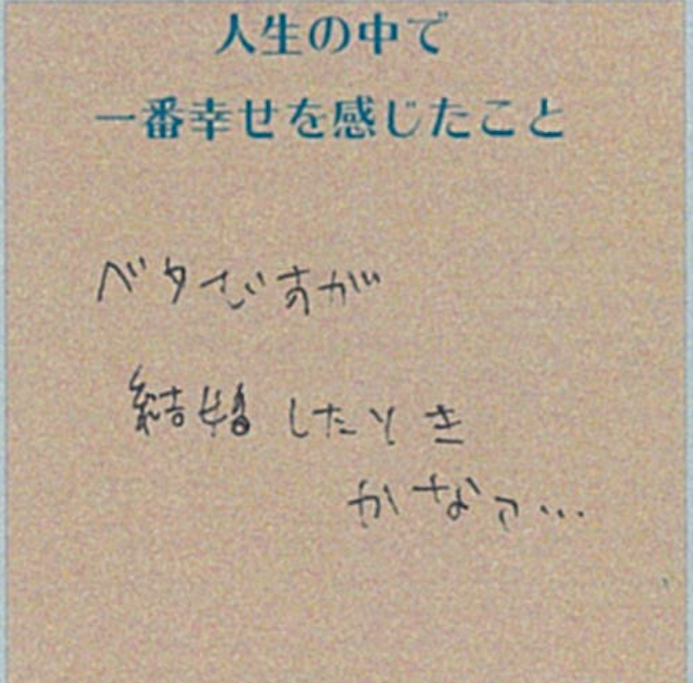 人生の中で
一番幸せを感じたこと
ベタですが
結婚したとき
かなァ…